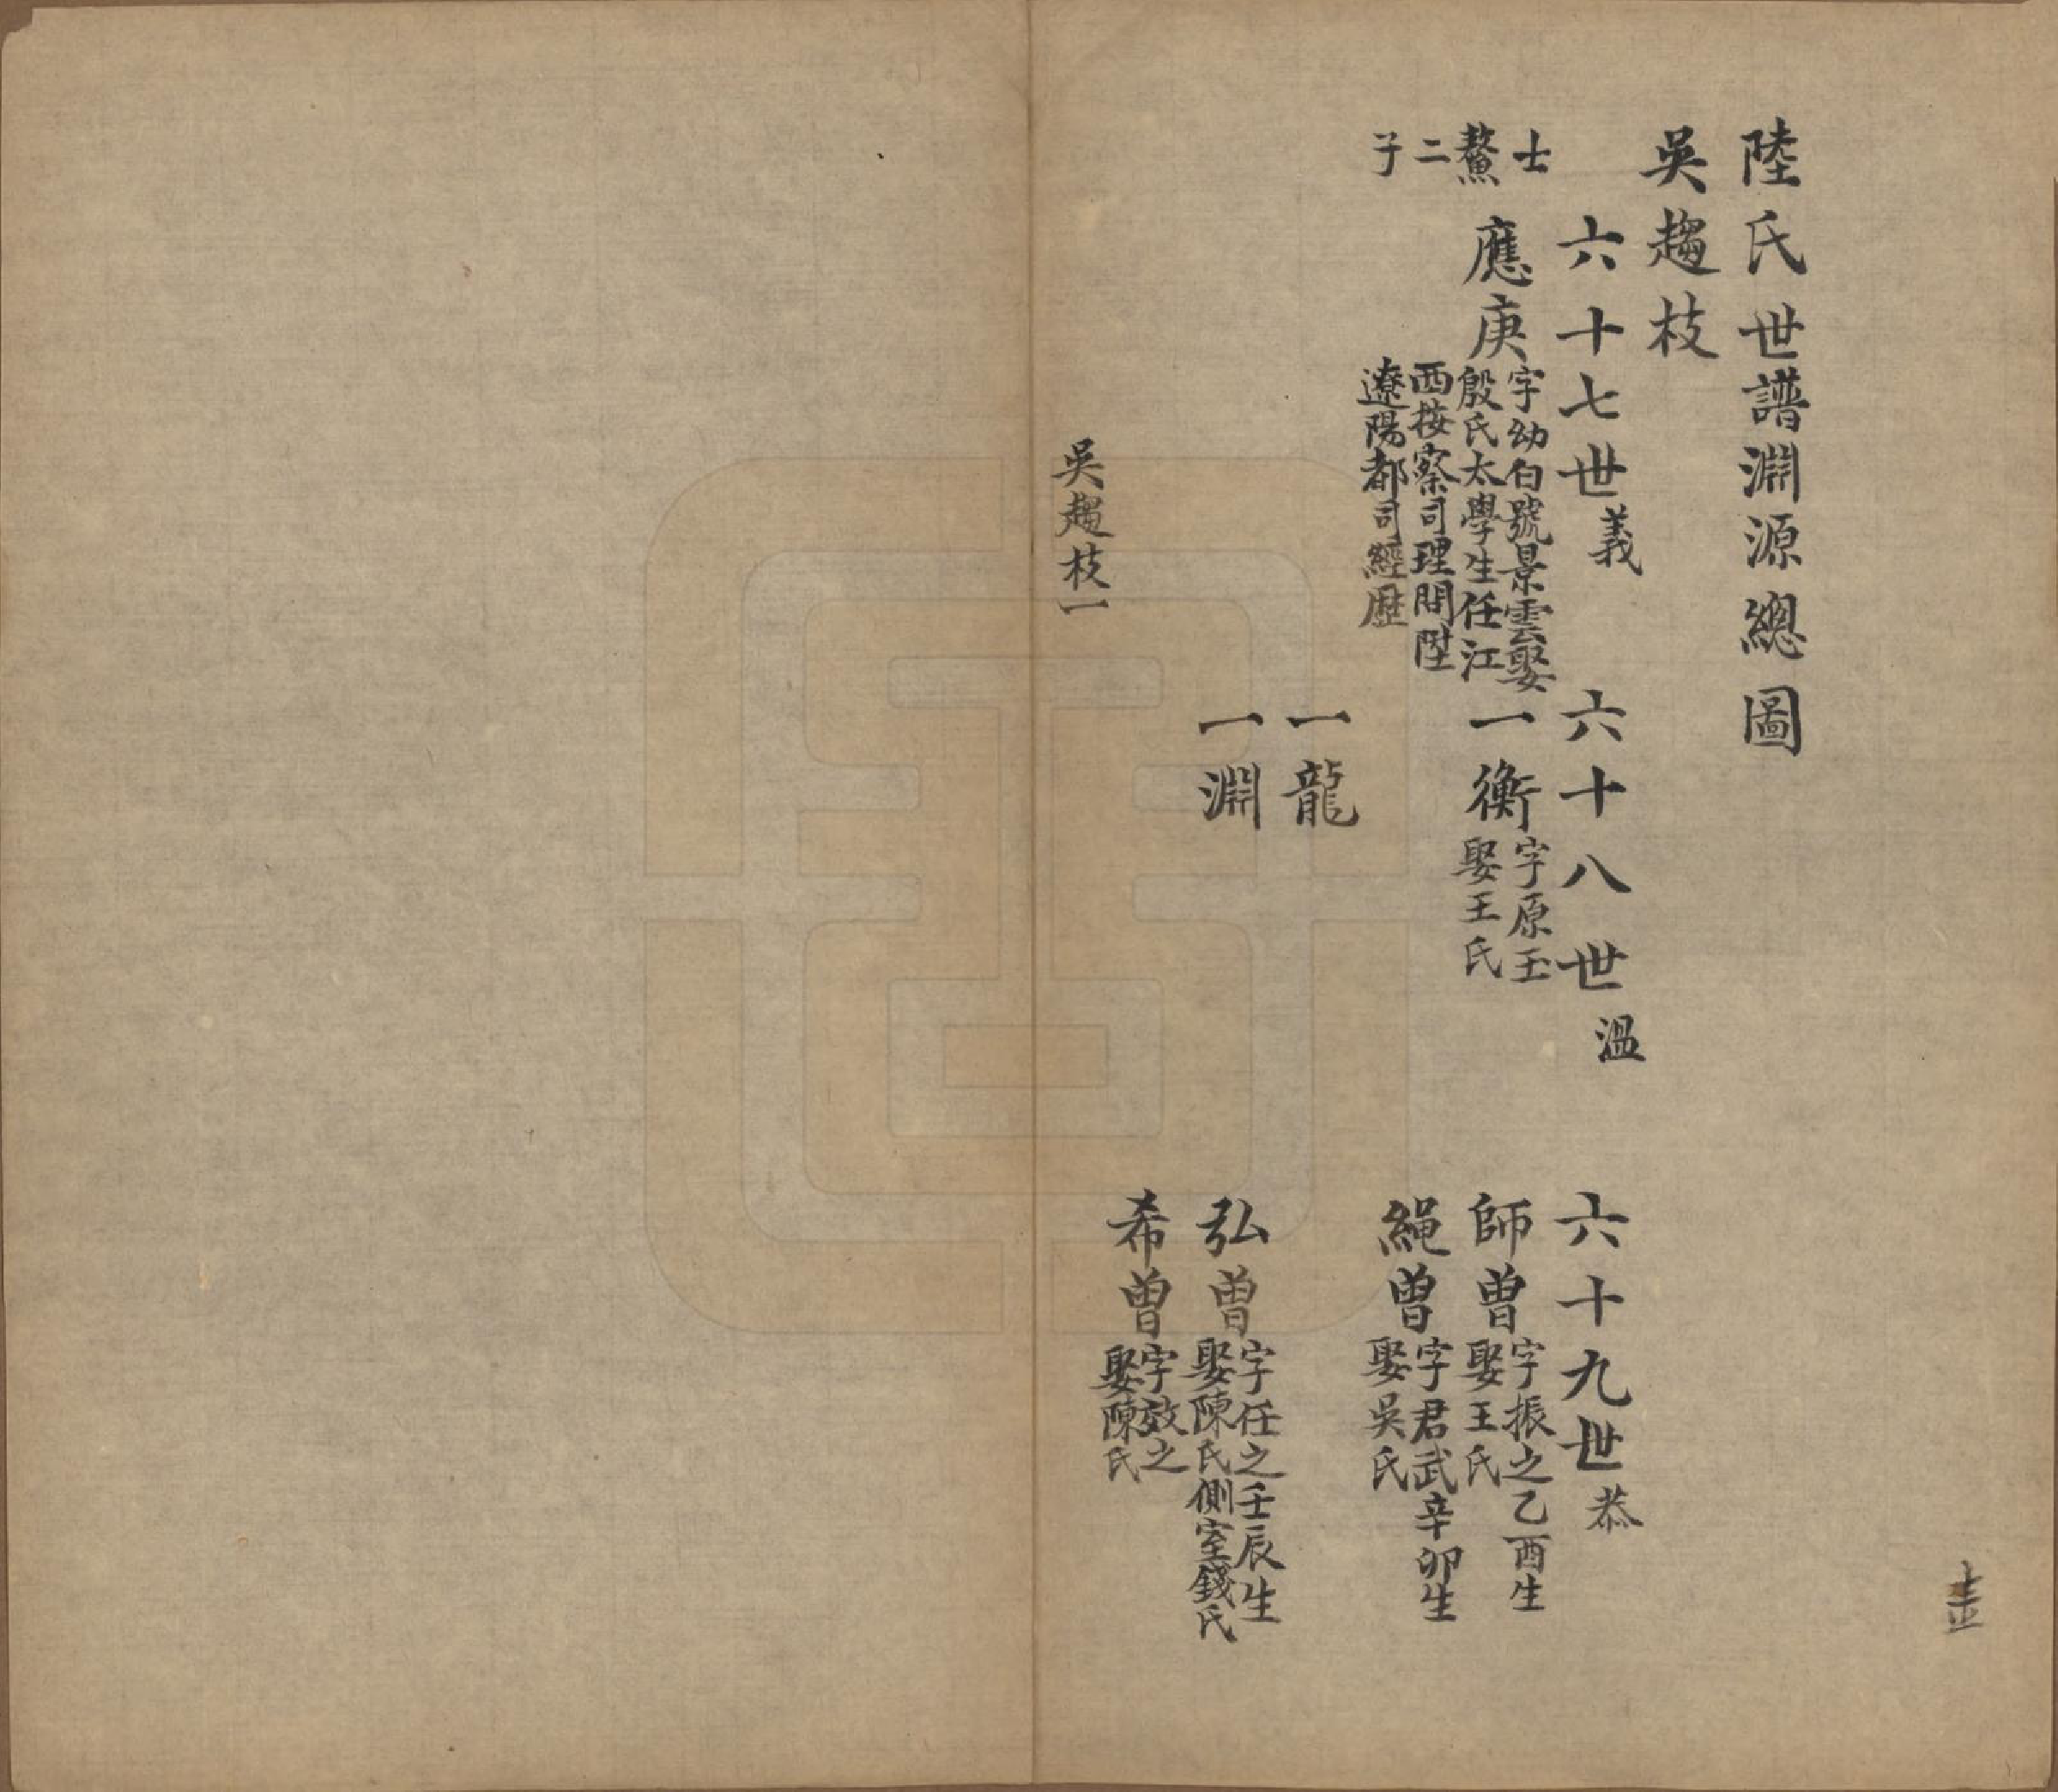 陸氏世譜淵源總圖
吳趨枝
六十七世義
六十八世溫
六十九世恭
士鰲二子
應庚
字幼白號景雲娶
殷氏太學生任江
西按察司理問陞
遼陽都司經歷
一衡
字原玉
娶王氏
師曾
字振之乙酉生
娶王氏
繩曾
字君武辛卯生
娶吳氏
一龍
一淵
弘曾
字任之壬辰生
娶陳氏側室錢氏
希曾
字效之
娶陳氏
吳趨枝一